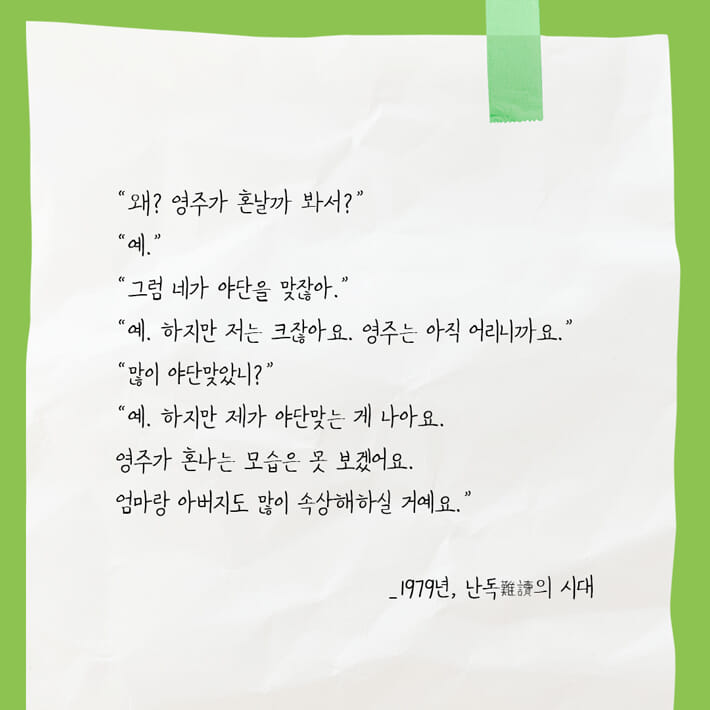 “왜? 영주가 혼날까 봐서?”
“예.”
“그럼 네가 야단을 맞잖아.”
“예. 하지만 저는 크잖아요. 영주는 아직 어리니까요.”
“많이 야단맞았니?”
“예. 하지만 제가 야단맞는 게 나아요.
영주가 혼나는 모습은 못 보겠어요.
엄마랑 아버지도 많이 속상해하실 거예요.”
_1979년, 난독難讀의 시대